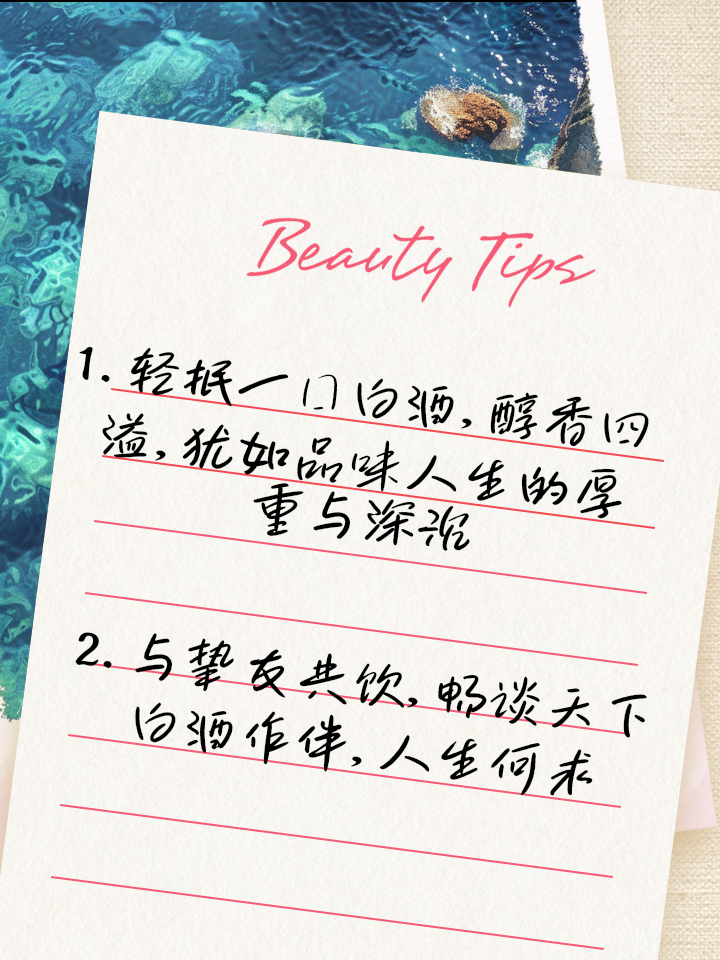 Beauty Tips
1. 轻抿一口白酒,醇香四
溢,犹如品味人生的厚
重与深沉
2. 与挚友共饮,畅谈天下
白酒作伴,人生何求